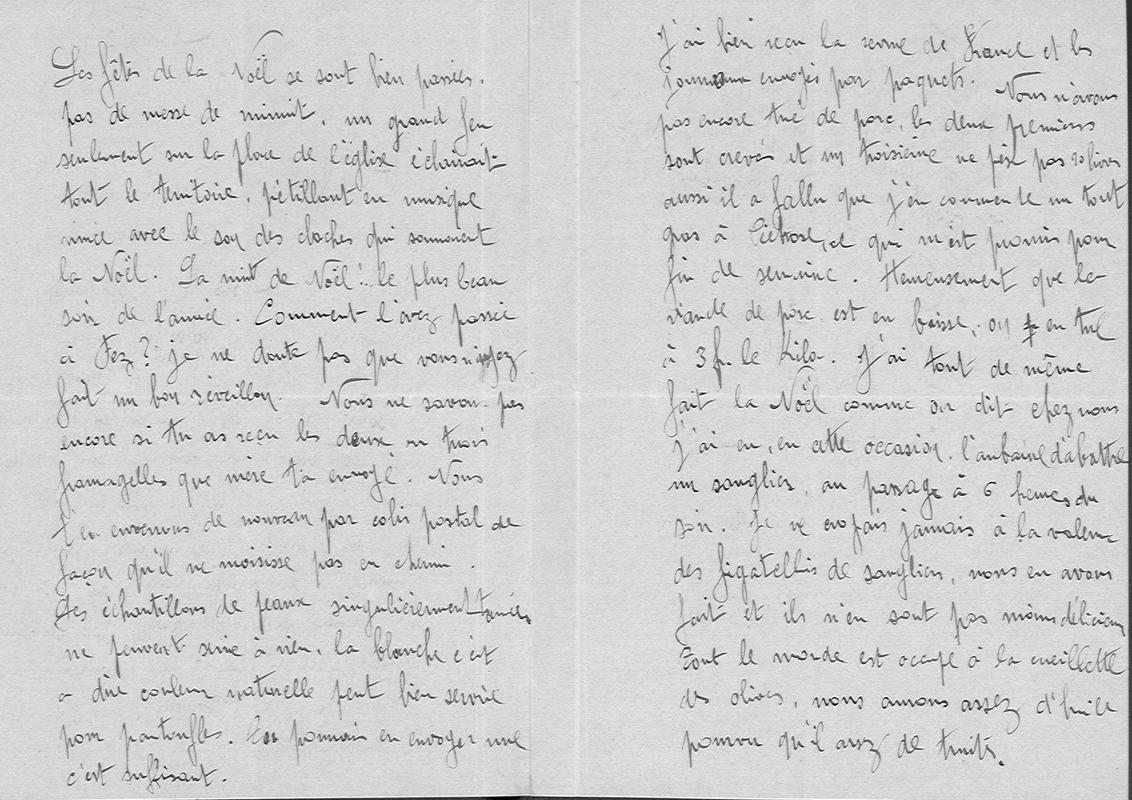 Les fêtes de la Noël se sont bien passées.
pas de messe de minuit, un grand feu
seulement sur la place de l'église éclairait
tout le territoire, pétillant en musique
avec le son des cloches qui sonnaient
la Noël. La nuit de Noël! le plus beau
soir de l'année. Comment l'avez passée
à Fez? je ne doute pas que vous
fait un bon réveillon. Nous ne savons pas
encore si tu as reçu les deux ou trois
fromagelles que mère t'a envoyé. Nous
t'en enverrons de nouveau par colis postal de
façon qu'il ne moisisse pas en chemin.
Les échantillons de peaux singulièrement tannées
ne peuvent servir à rien, la blanche c'est
a dire couleur naturelle peut bien servir
pour pantoufles. Tu pourrais en envoyer une
c'est suffisant.
J'ai bien reçu la revue de France et les
journaux envoyés par paquets. Nous n'avons
pas encore tué de porc, les deux premiers
sont crevés et un troisième ne pèse pas 20 livres
aussi il a fallu que j'en commente un tout
gros à Pietroso, ce qui m'est promis pour
fin de semaine. Heureusement que la
viande de porc est en baisse, on en tue
à 3 fr. le kilo. J'ai tout de même
fait la Noël comme on dit chez nous
j'ai eu, en cette occasion, l'aubaine d'abattre
un sanglier, au passage à 6 heures du
soir. Je ne croyais jamais à la valeur
des figatellis de sanglier, nous en avons
fait et ils n'en sont pas moins délicieux
Tout le monde est occupé à la cueillette
des olives, nous aurons assez d'huile
pourvu qu'il assez de truites.